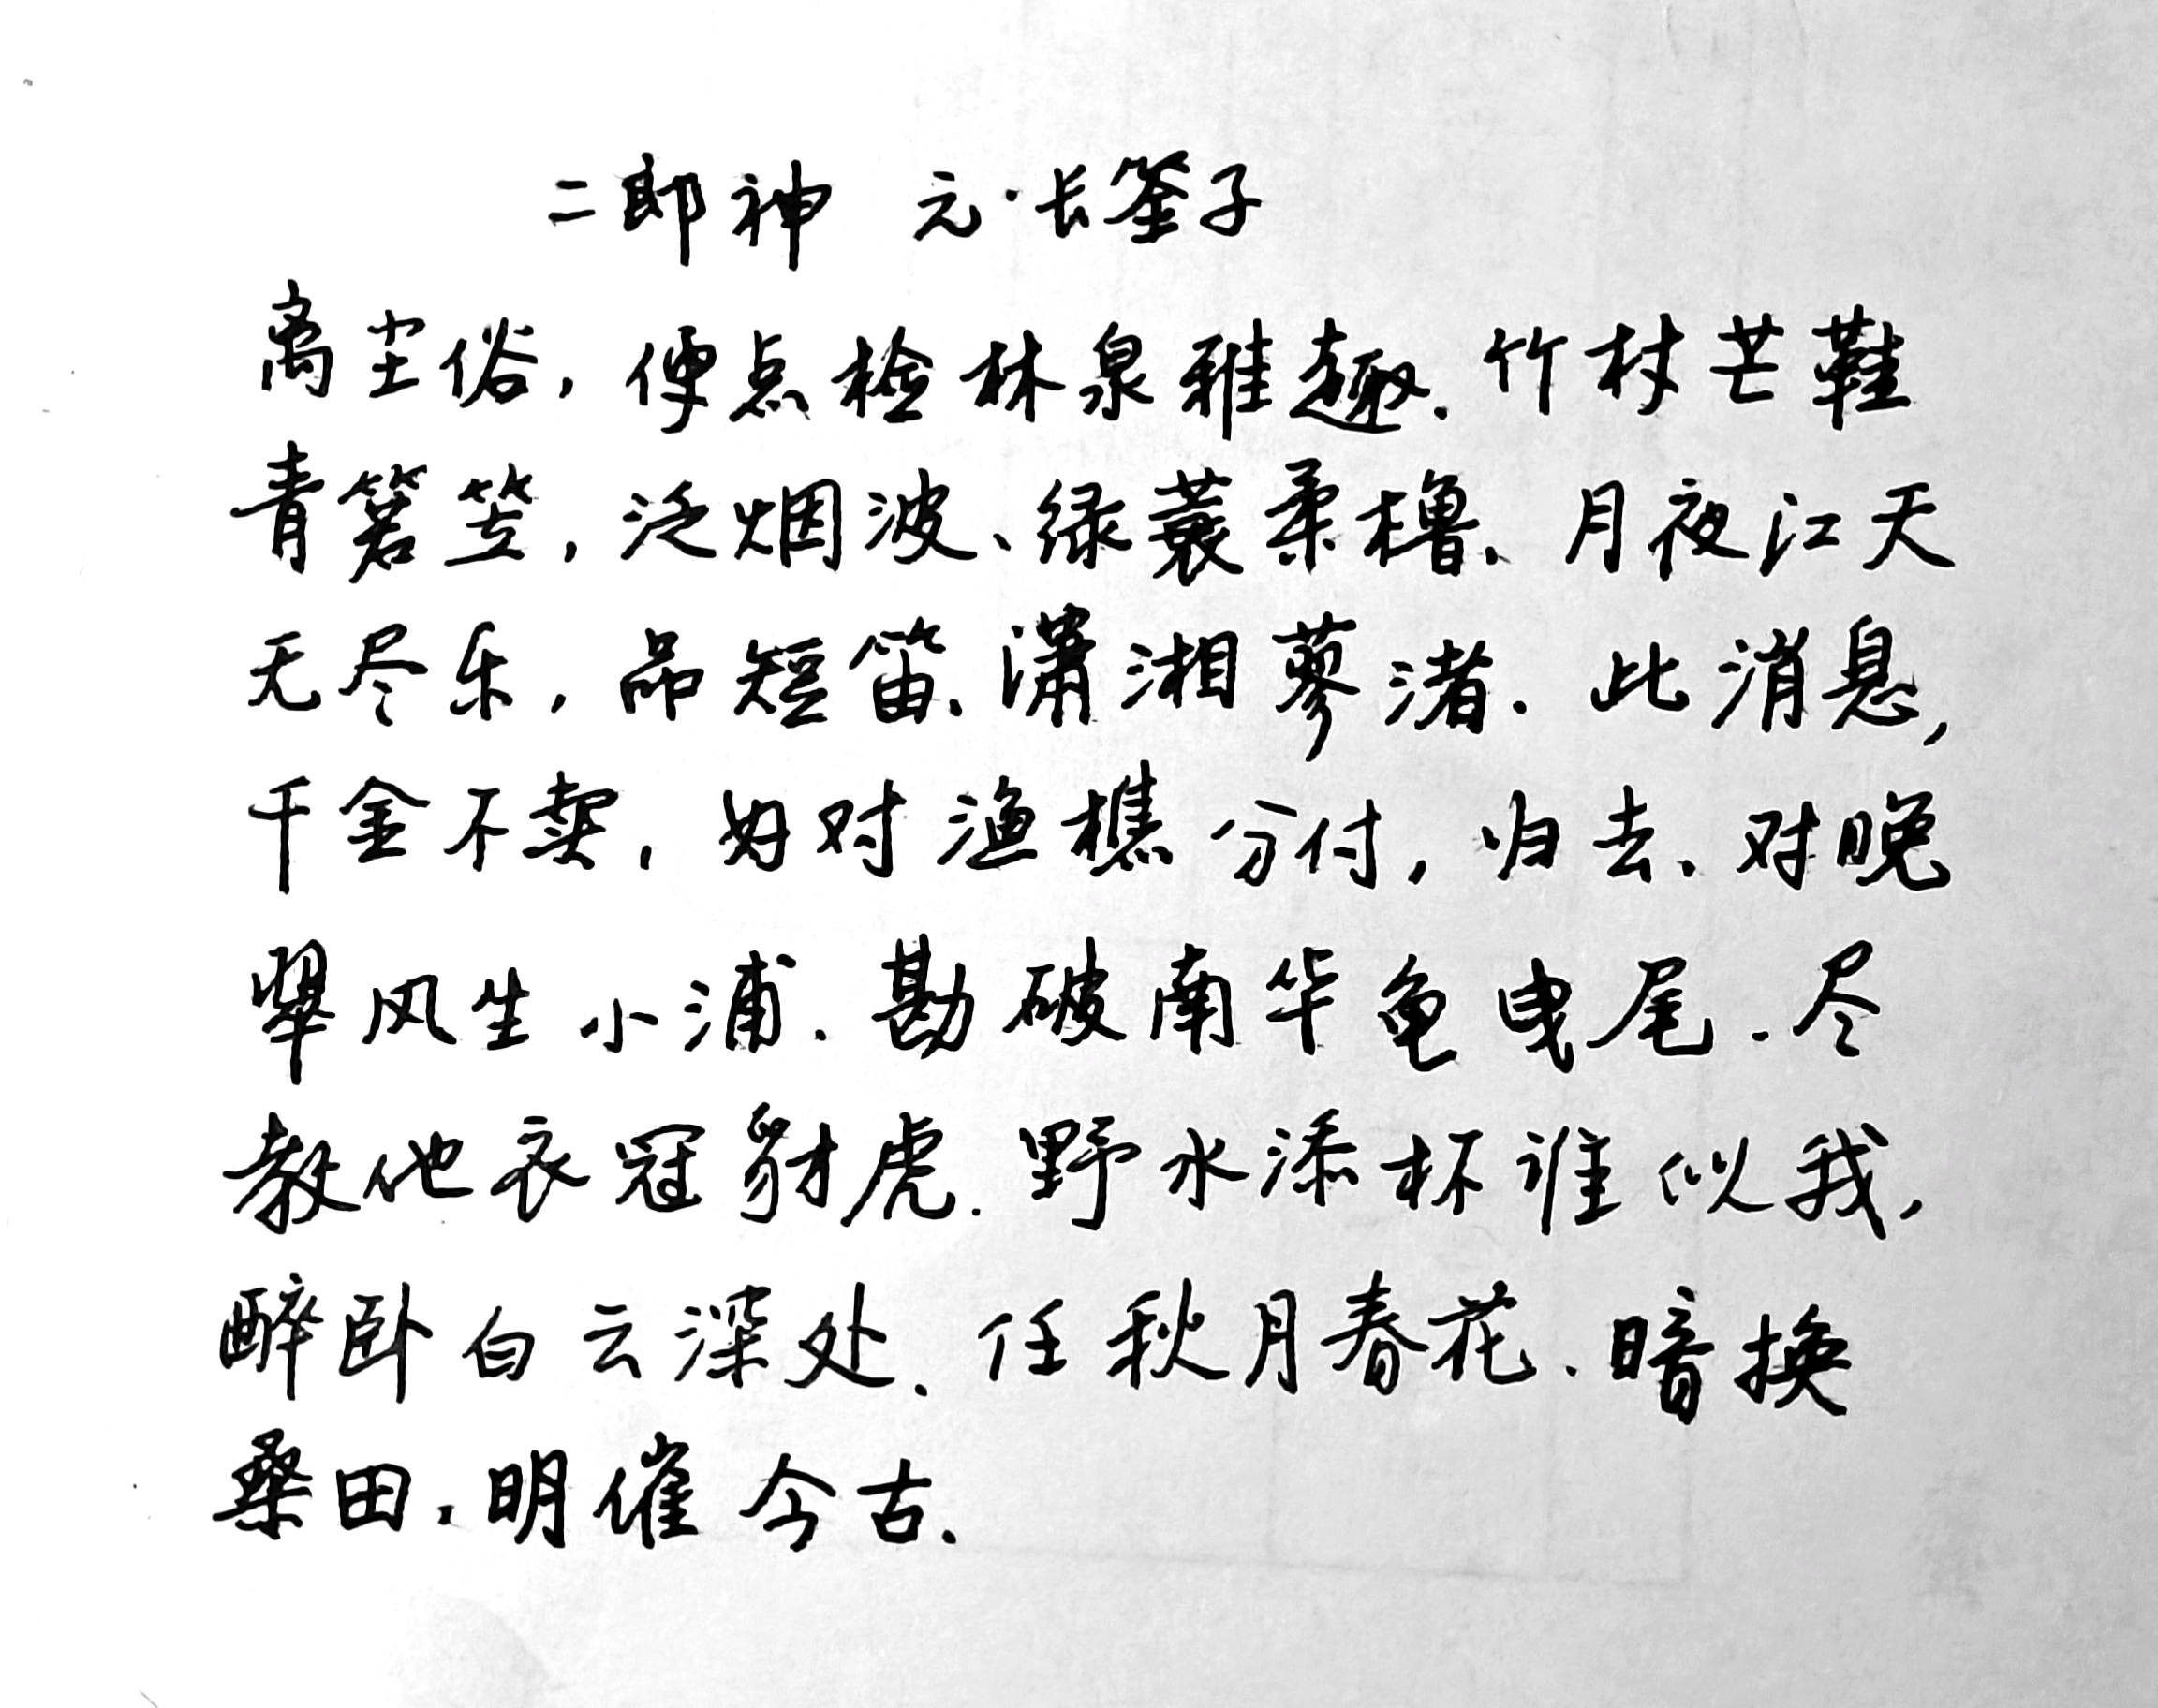 二郎神 元·长筌子
离尘俗，便点检林泉雅趣．竹杖芒鞋
青箬笠，泛烟波、绿蓑柔橹、月夜江天
无尽乐，品短笛、潇湘蓼渚．此消息，
千金不卖，好对渔樵分付，归去、对晚
翠风生小浦．勘破南华龟曳尾．尽
教他衣冠豺虎．野水添杯谁似我，
醉卧白云深处．任秋月春花．暗换
桑田，明催今古．